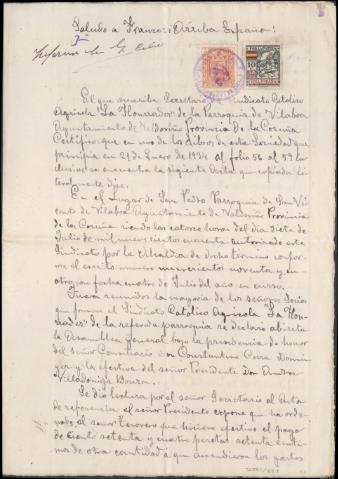 Saludo a Franco: ¡Arriba España!
El que suscribe Secretario Sindicato Católico
Agrícola "La Honradez" de la Parroquia de Vilaboa
Ayuntamiento de Valdoviño Provincia de la Coruña
Certifico: que en uno de los libros de esta Sociedad que
principia en 21 de Enero de 1934 al folio 56 al 59 in
clusive se encuentra la siguiente Acta que copiada li
teralmente dice.
En el lugar de San Pedro Parroquia de San Vi
cente de Vilaboa Ayuntamiento de Valdoviño Provincia
de la Coruña siendo las catorce horas del día siete de
Julio de mil nuevecientos cuarenta autorizado este
Sindicato por la Alcaldía de dicho término confor
me al escrito número nuevecientos noventa y en
otro con fecha cuatro de Julio del año en curso.
Fueron reunidos la mayoría de los señores Socios
que forman el Sindicato Católico Agrícola "La Hon
radez" de la referida parroquia se declaró abierta
la Asamblea general bajo la presidencia de honor
del señor Consiliario Don Constantino Corra Domin
guez y la efectiva del señor Presidente Don Andres
Villadóniga Bouza.
Se dió lectura por el señor Secretario al Acta
de referencia el señor Presidente expone que ha orde
nado al señor Tesorero que hiciese efectivo el pago
de ciento setenta y cuatro pesetas setenta cénti
mos de otra cantidad á que ascendieron los gastos